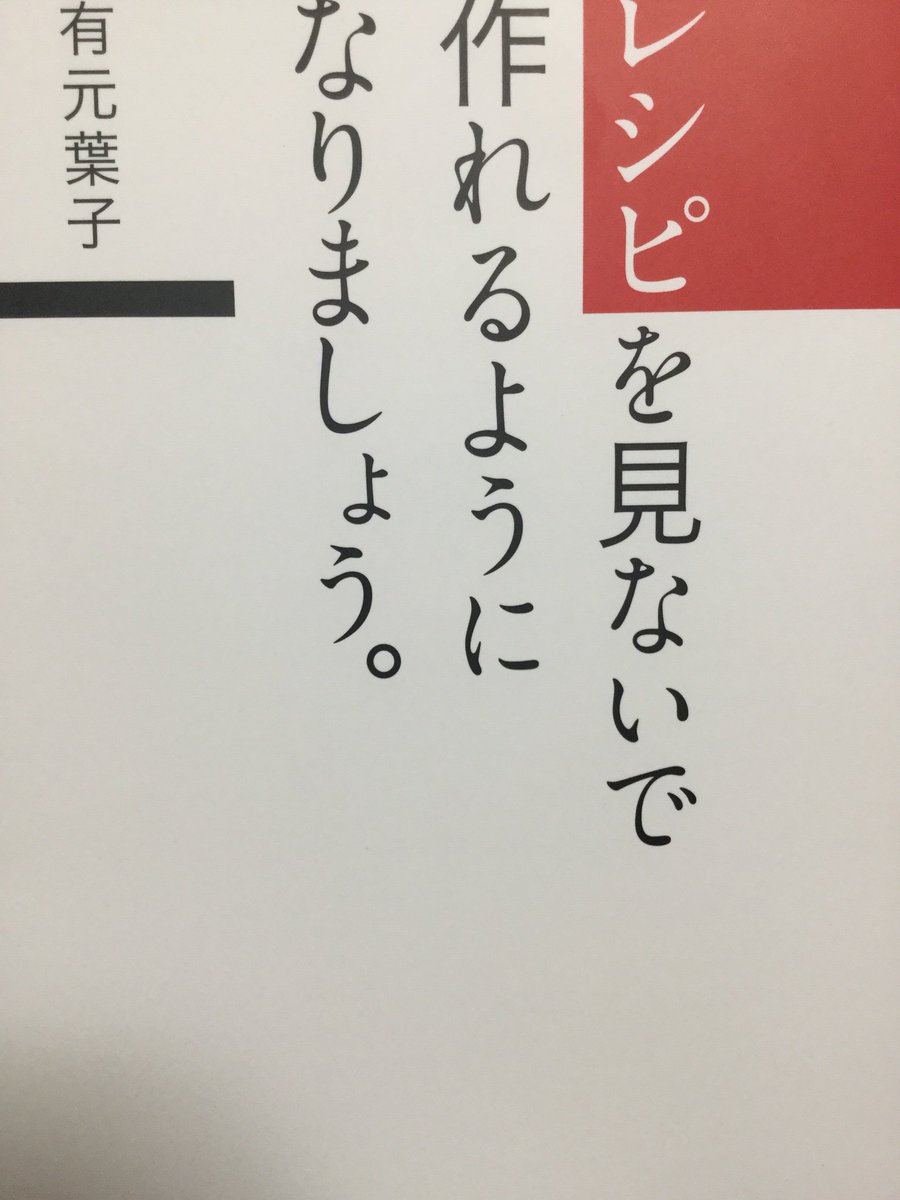 レシピを見ないで
作れるように
なりましょう。
有元葉子